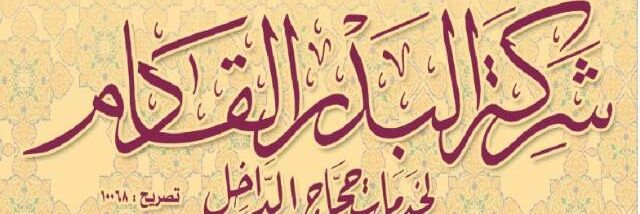 شركة البدر القادم
لخدمات حجاج الداخل
تصريح : ١٠٠٦٨